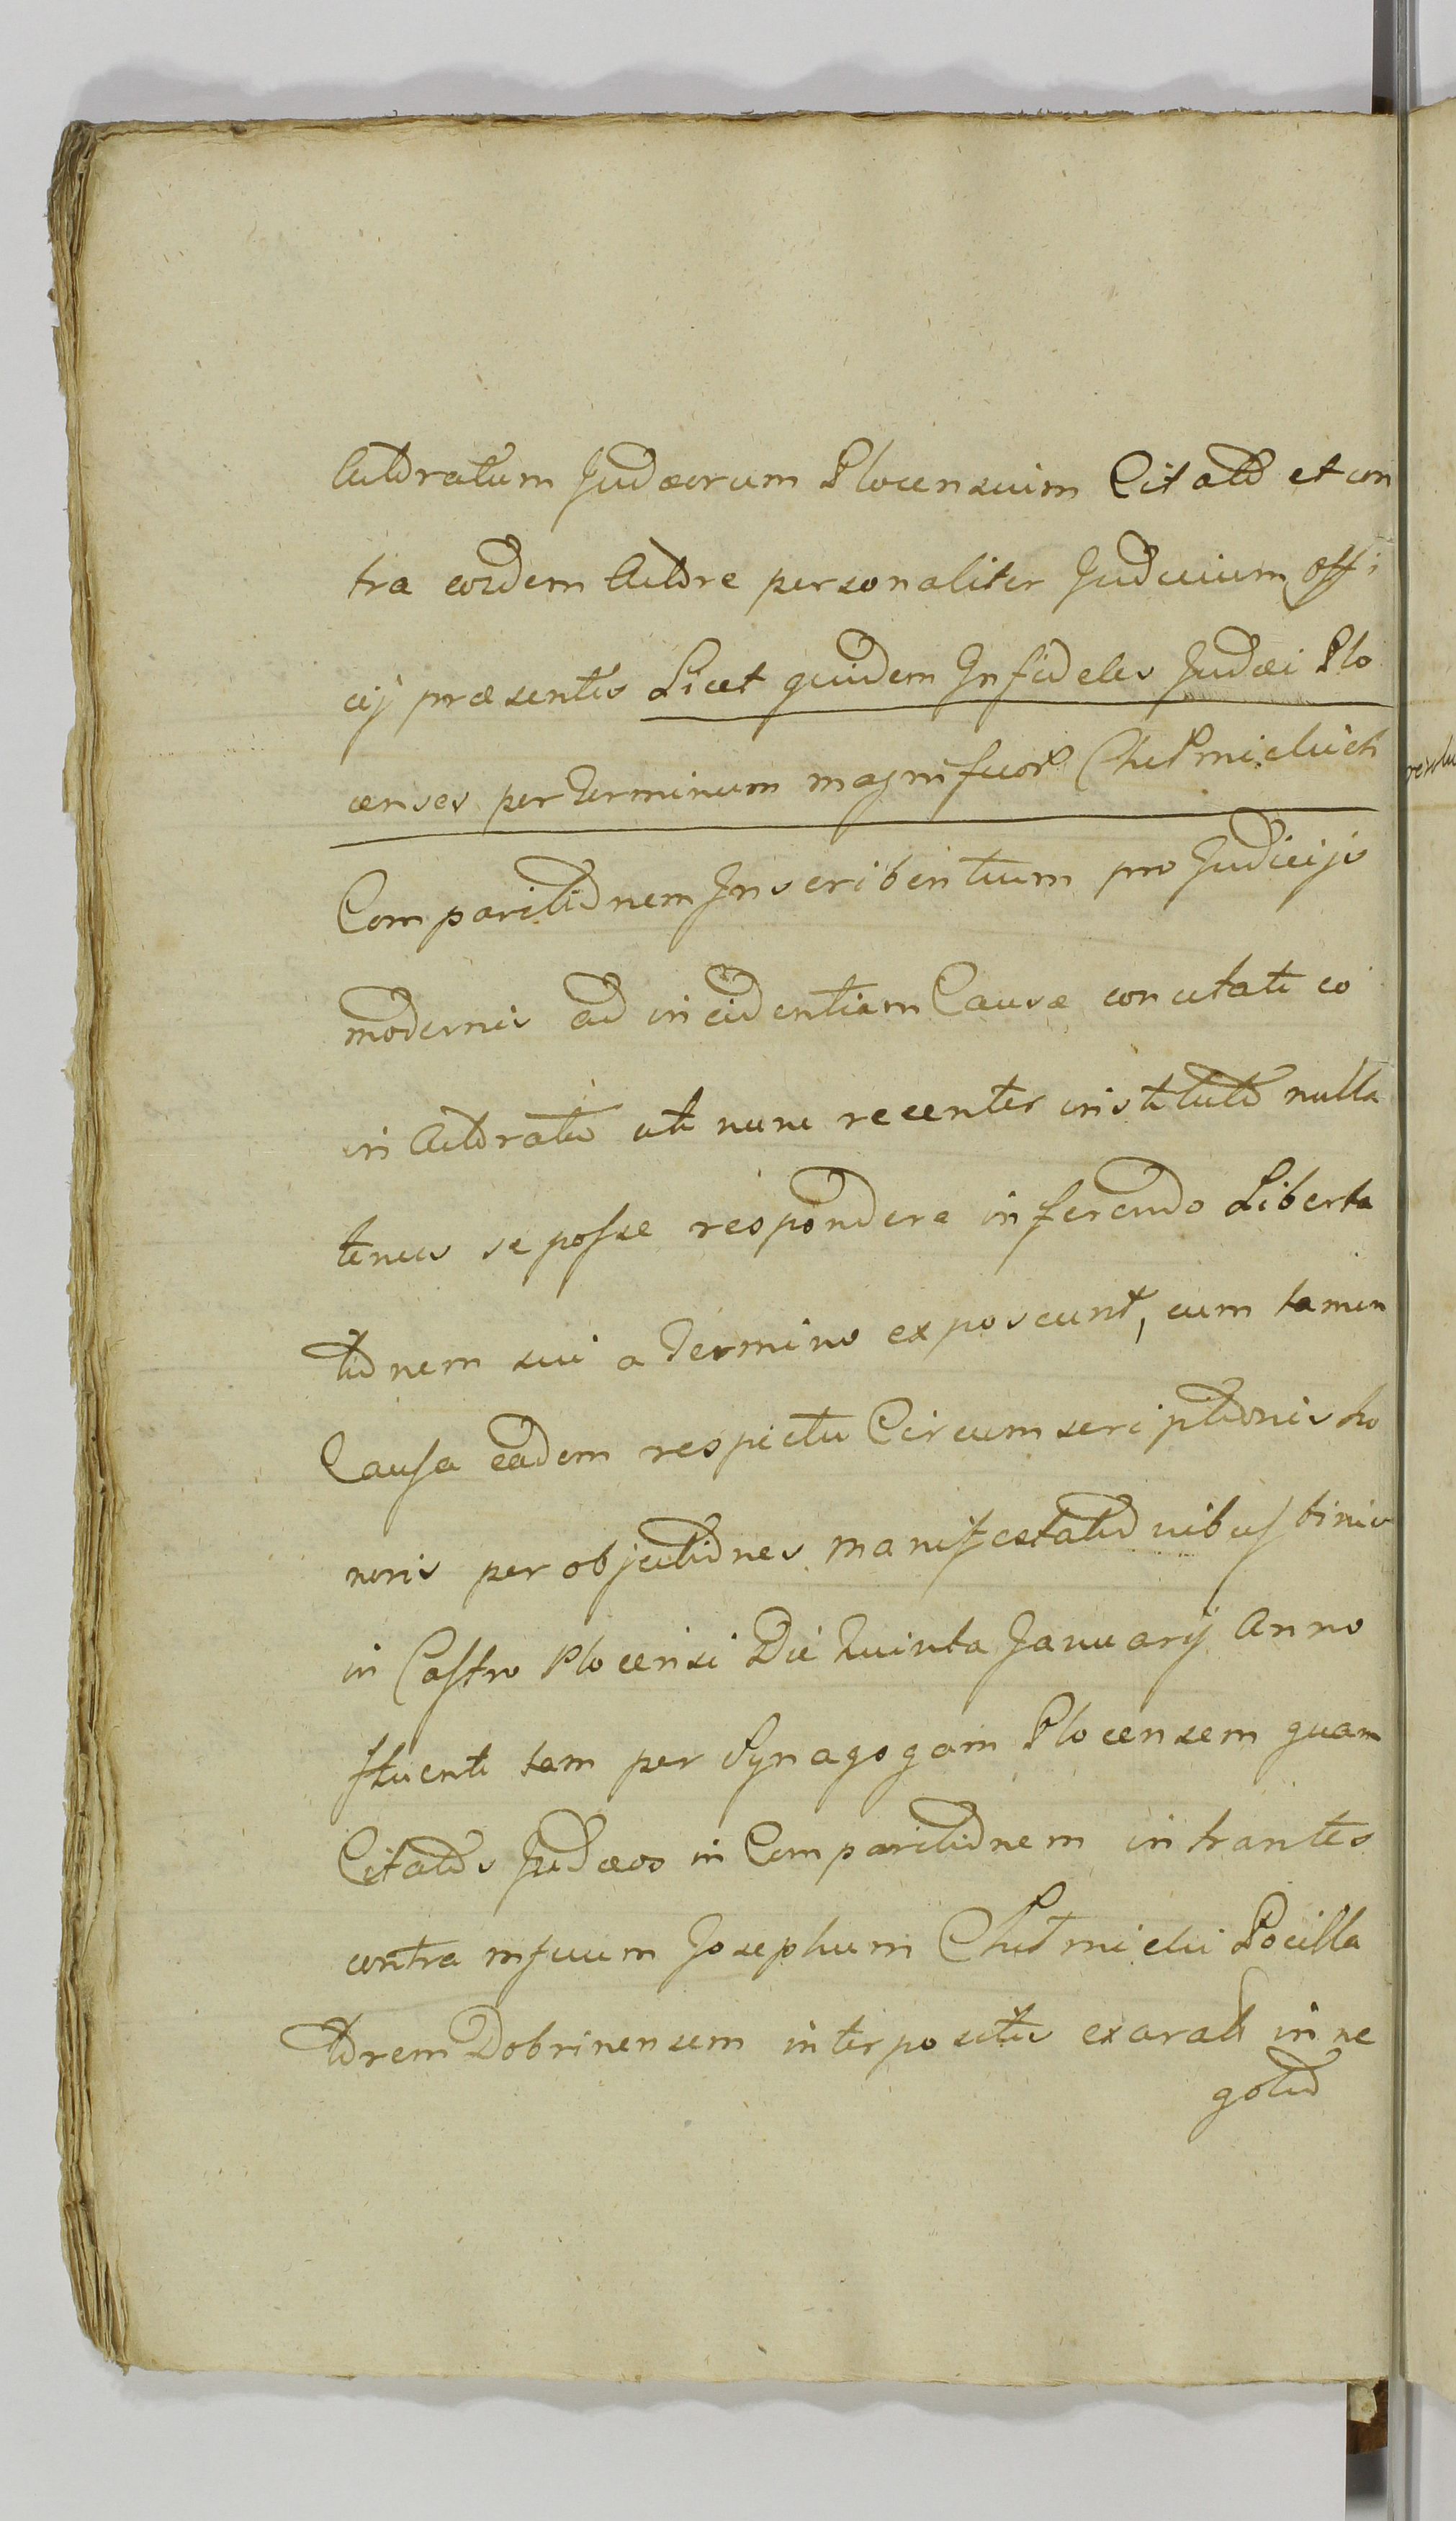 Actoratum Judæorum Plocensium Citato et con
tra eosdem Actore personaliter Judicium offi
cij præsentis Licet quidem Infideles Judæi Plo
censes per terminum magnificor Chełmickich
Comparitionem Inscribentium pro Judicijs
modernis ad incidentiam Causæ concitati eo
in Actoratu uti nunc recenter instituto nulla
tenus se posse respondere inferendo Liberta
tionem sui a Termino exposcunt, cum tamen
Causa eadem respectu Circumscriptionis ho
noris per objectiones manifestationibus binis
in Castro Plocensi Die Quinta January Anno
fluenti tam per Synagogam Plocensem quam
Citatos Judæos in Comparitionem intrantes
contra mficum Josephum Chełmicki Pocilla
torem Dobrinensem interpositis exarati in ne
gotio